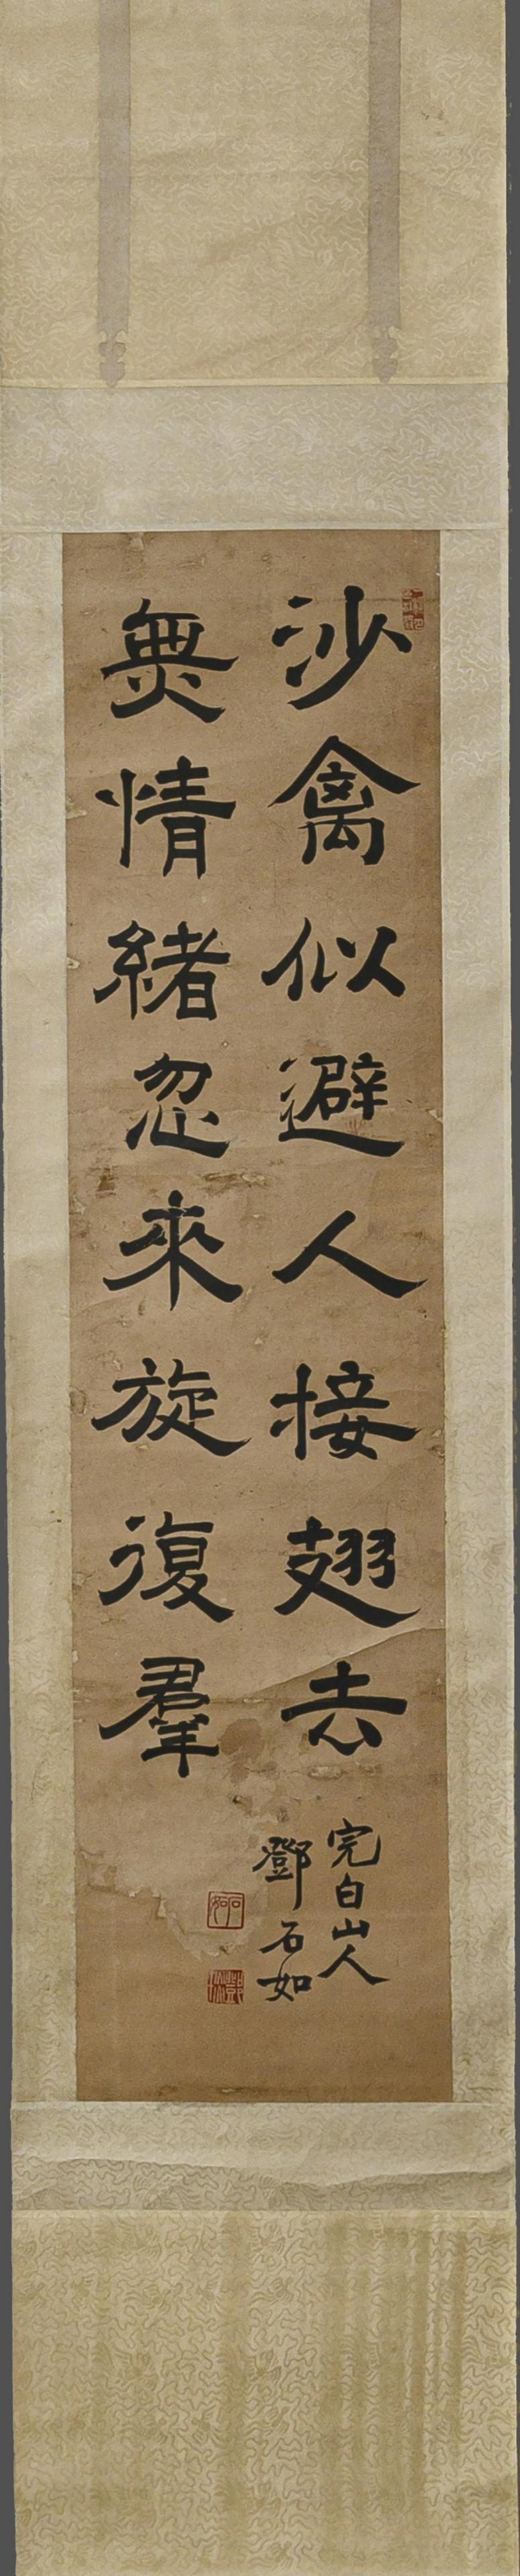 沙禽似避人接翅去
無情緒忽來旋復羣
完白山人
鄧石如
石如